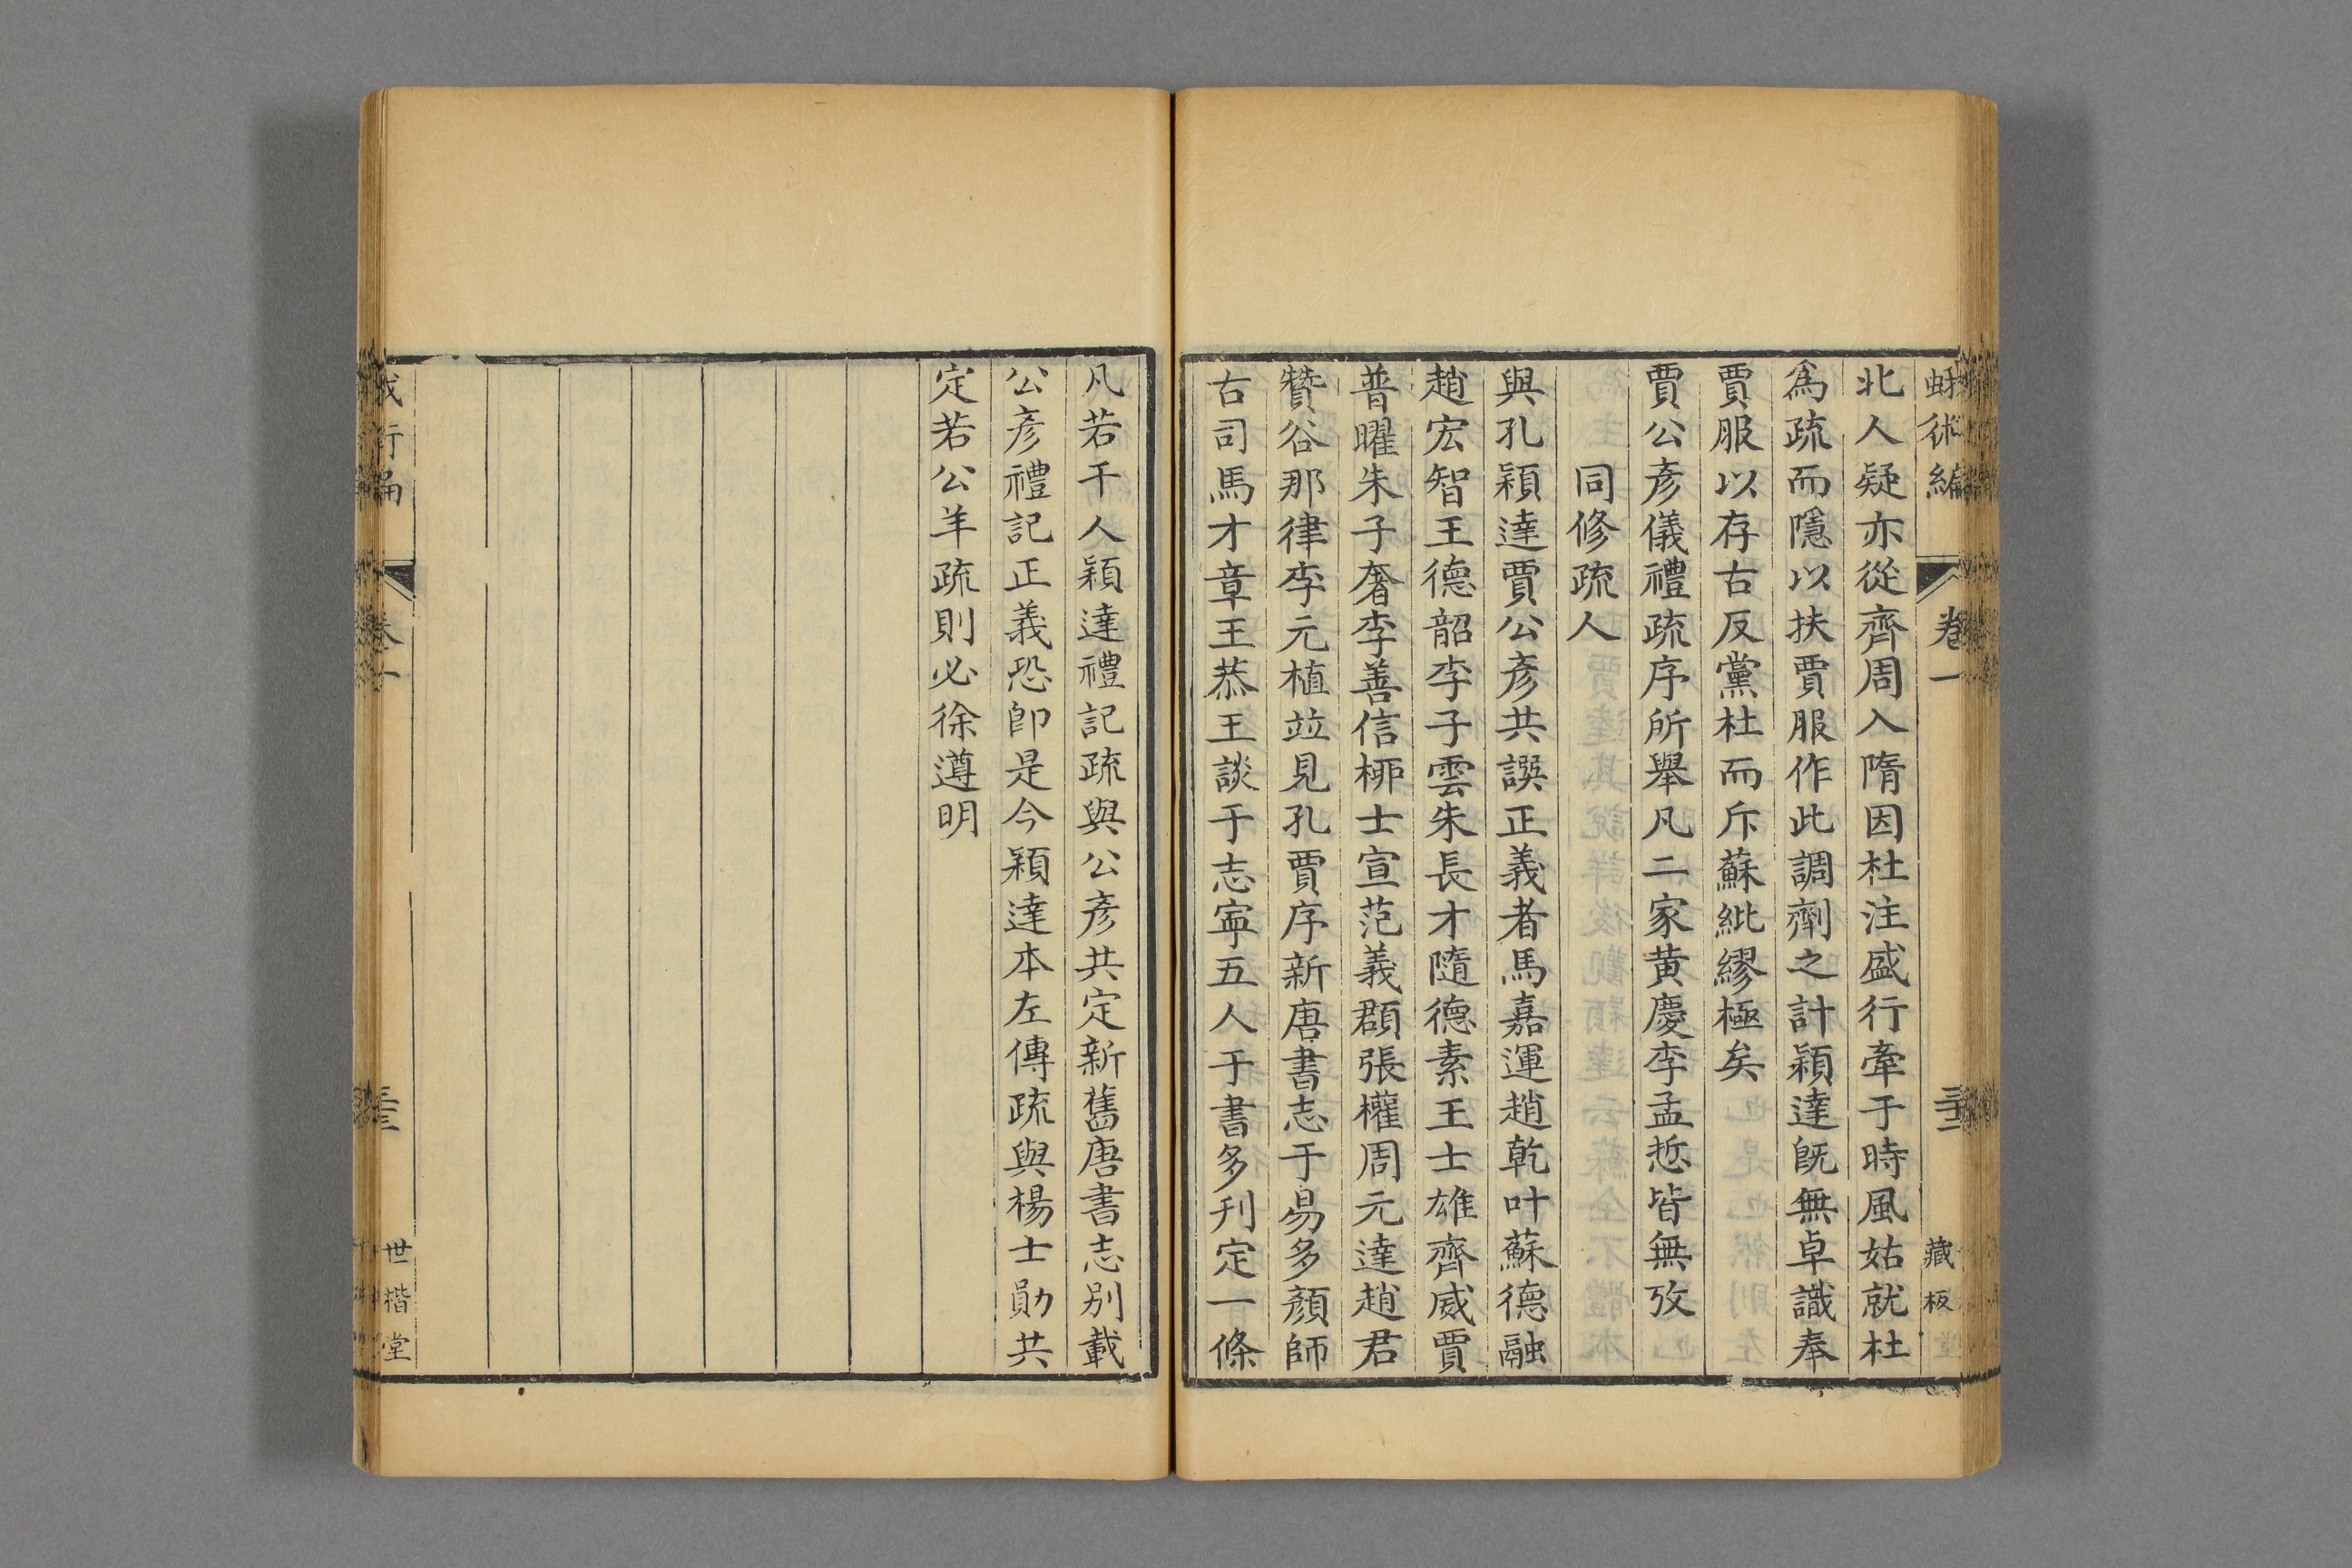 蛾術編 卷一 三十二 藏板
北人疑亦從齊周入隋因杜注盛行牽于時風姑就杜
爲疏而隱以扶賈服作此調劑之計穎達旣無卓識奉
賈服以存古反黨杜而斥蘇紕繆極矣
賈公彥儀禮疏序所舉凡二家黃慶李孟悊皆無攷
同修疏人
與孔穎達賈公彥共譔正義者馬嘉運趙乾叶蘇德融
趙宏智王德韶李子雲朱長才隨德素王士雄齊威賈
普曜朱子奢李善信栁士宣范義頵張權周元達趙君
贊谷那律李元植竝見孔賈序新唐書志于易多顏師
古司馬才章王恭王談于志寧五人于書多刋定一條
凡若干人穎達禮記疏與公彥共定新舊唐書志別載
公彥禮記正義恐卽是今穎達本左傳疏與楊士勛共
定若公羊疏則必徐遵明
世楷堂